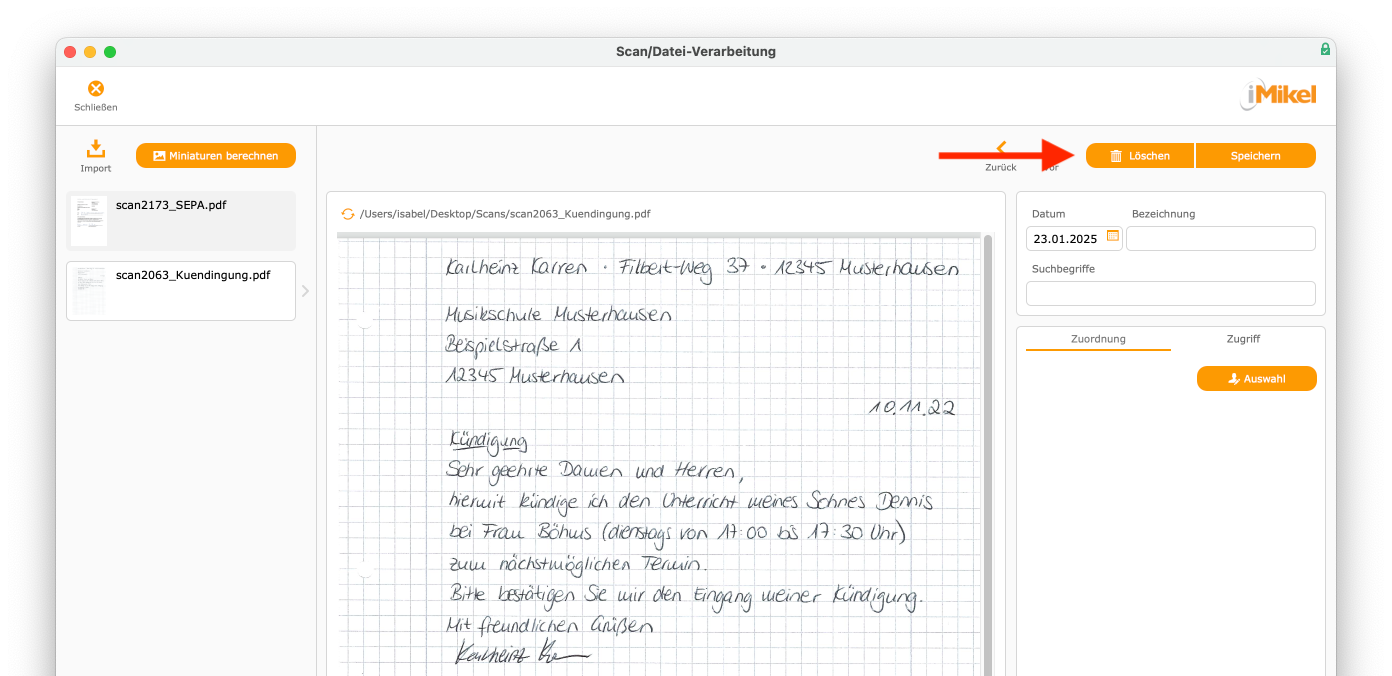 Scan/Datei-Verarbeitung
Schließen
iMikel
Import
Miniaturen berechnen
Zurück
Löschen
Speichern
scan2173_SEPA.pdf
scan2063_Kuendingung.pdf
/Users/isabel/Desktop/Scans/scan2063_Kuendingung.pdf
Karlheinz Karren · Filbert-Weg 37 · 12345 Musterhausen
Musikschule Musterhausen
Beispielstraße 1
12345 Musterhausen
10.11.22
Kündigung
Sehr geehrte Damen und Herren,
hiermit kündige ich den Unterricht meines Sohnes Dennis
bei Frau Böhms (dienstags von 17:00 bis 17:30 Uhr)
zum nächstmöglichen Termin.
Bitte bestätigen Sie mir den Eingang meiner Kündigung.
Mit freundlichen Grüßen
Karlheinz
Datum
Bezeichnung
23.01.2025
Suchbegriffe
Zuordnung
Zugriff
Auswahl